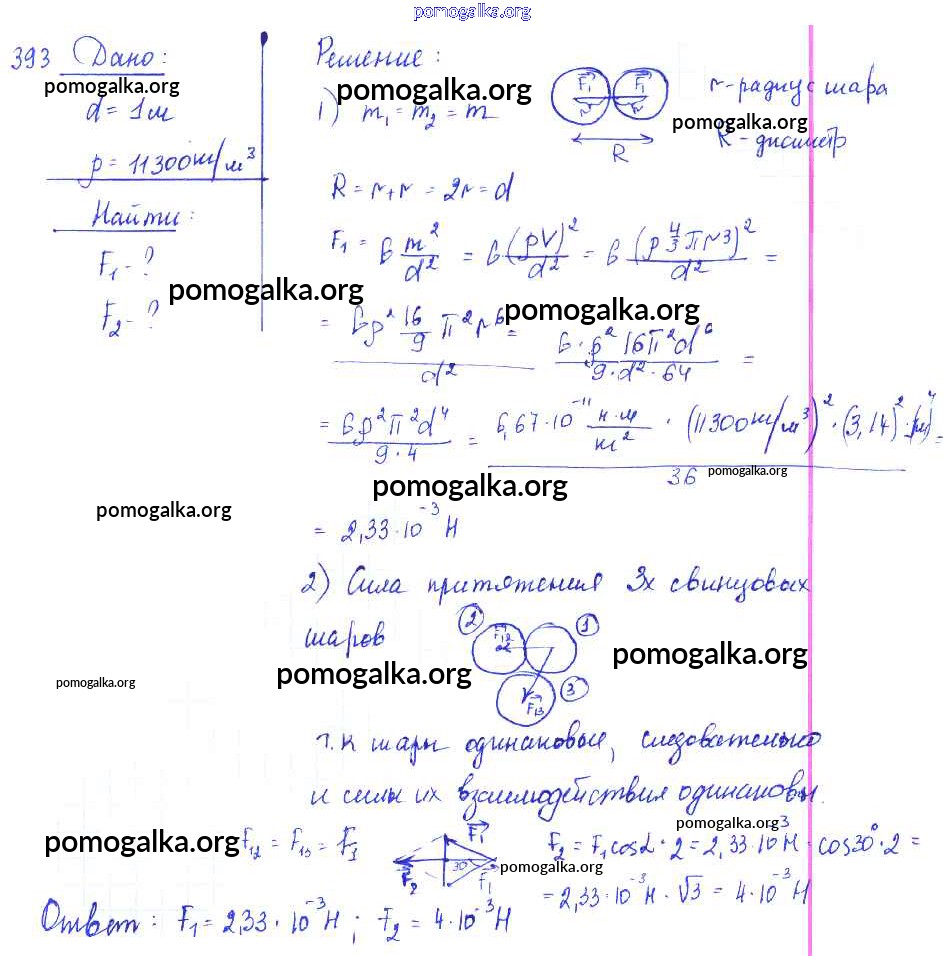 pomogalka.org
393 Дано:
pomogalka.org
d = 1 м
ρ = 11300 кг/м³
Найти:
F₁ - ?
F₂ - ?
Решение:
pomogalka.org
1) m₁ = m₂ = m
F₁ F₁
r r
R
r - радиус шара
pomogalka.org
R - диаметр
R = r + r = 2r = d
F₁ = G m²/d² = G (ρV)²/d² = G (ρ 4/3 π r³)²/d² =
pomogalka.org pomogalka.org
= Gρ² 16/9 π² r⁶ / d² = G · ρ² 16π² d⁶ / 9 · d² · 64 =
= Gρ²π²d⁴ / 9 · 4 = 6,67 · 10⁻¹¹ Н · м/кг² · (11300 кг/м³)² · (3,14)² · (1м)⁴ / 36 =
pomogalka.org
pomogalka.org
pomogalka.org
= 2,33 · 10⁻³ Н
2) Сила притяжения 3х свинцовых
шаров
2 1 3
F₁₂
F₁₃
pomogalka.org
pomogalka.org
pomogalka.org
т. к шары одинаковые, следовательно
и силы их взаимодействия одинаковы.
pomogalka.org
pomogalka.org
F₁₂ = F₁₃ = F₁
F₁
30°
F₂ F₁
pomogalka.org
F₂ = F₁cosα · 2 = 2,33 · 10³ Н · cos30° · 2 =
= 2,33 · 10⁻³ Н · √3 = 4 · 10⁻³ Н
Ответ: F₁ = 2,33 · 10⁻³ Н; F₂ = 4 · 10⁻³ Н